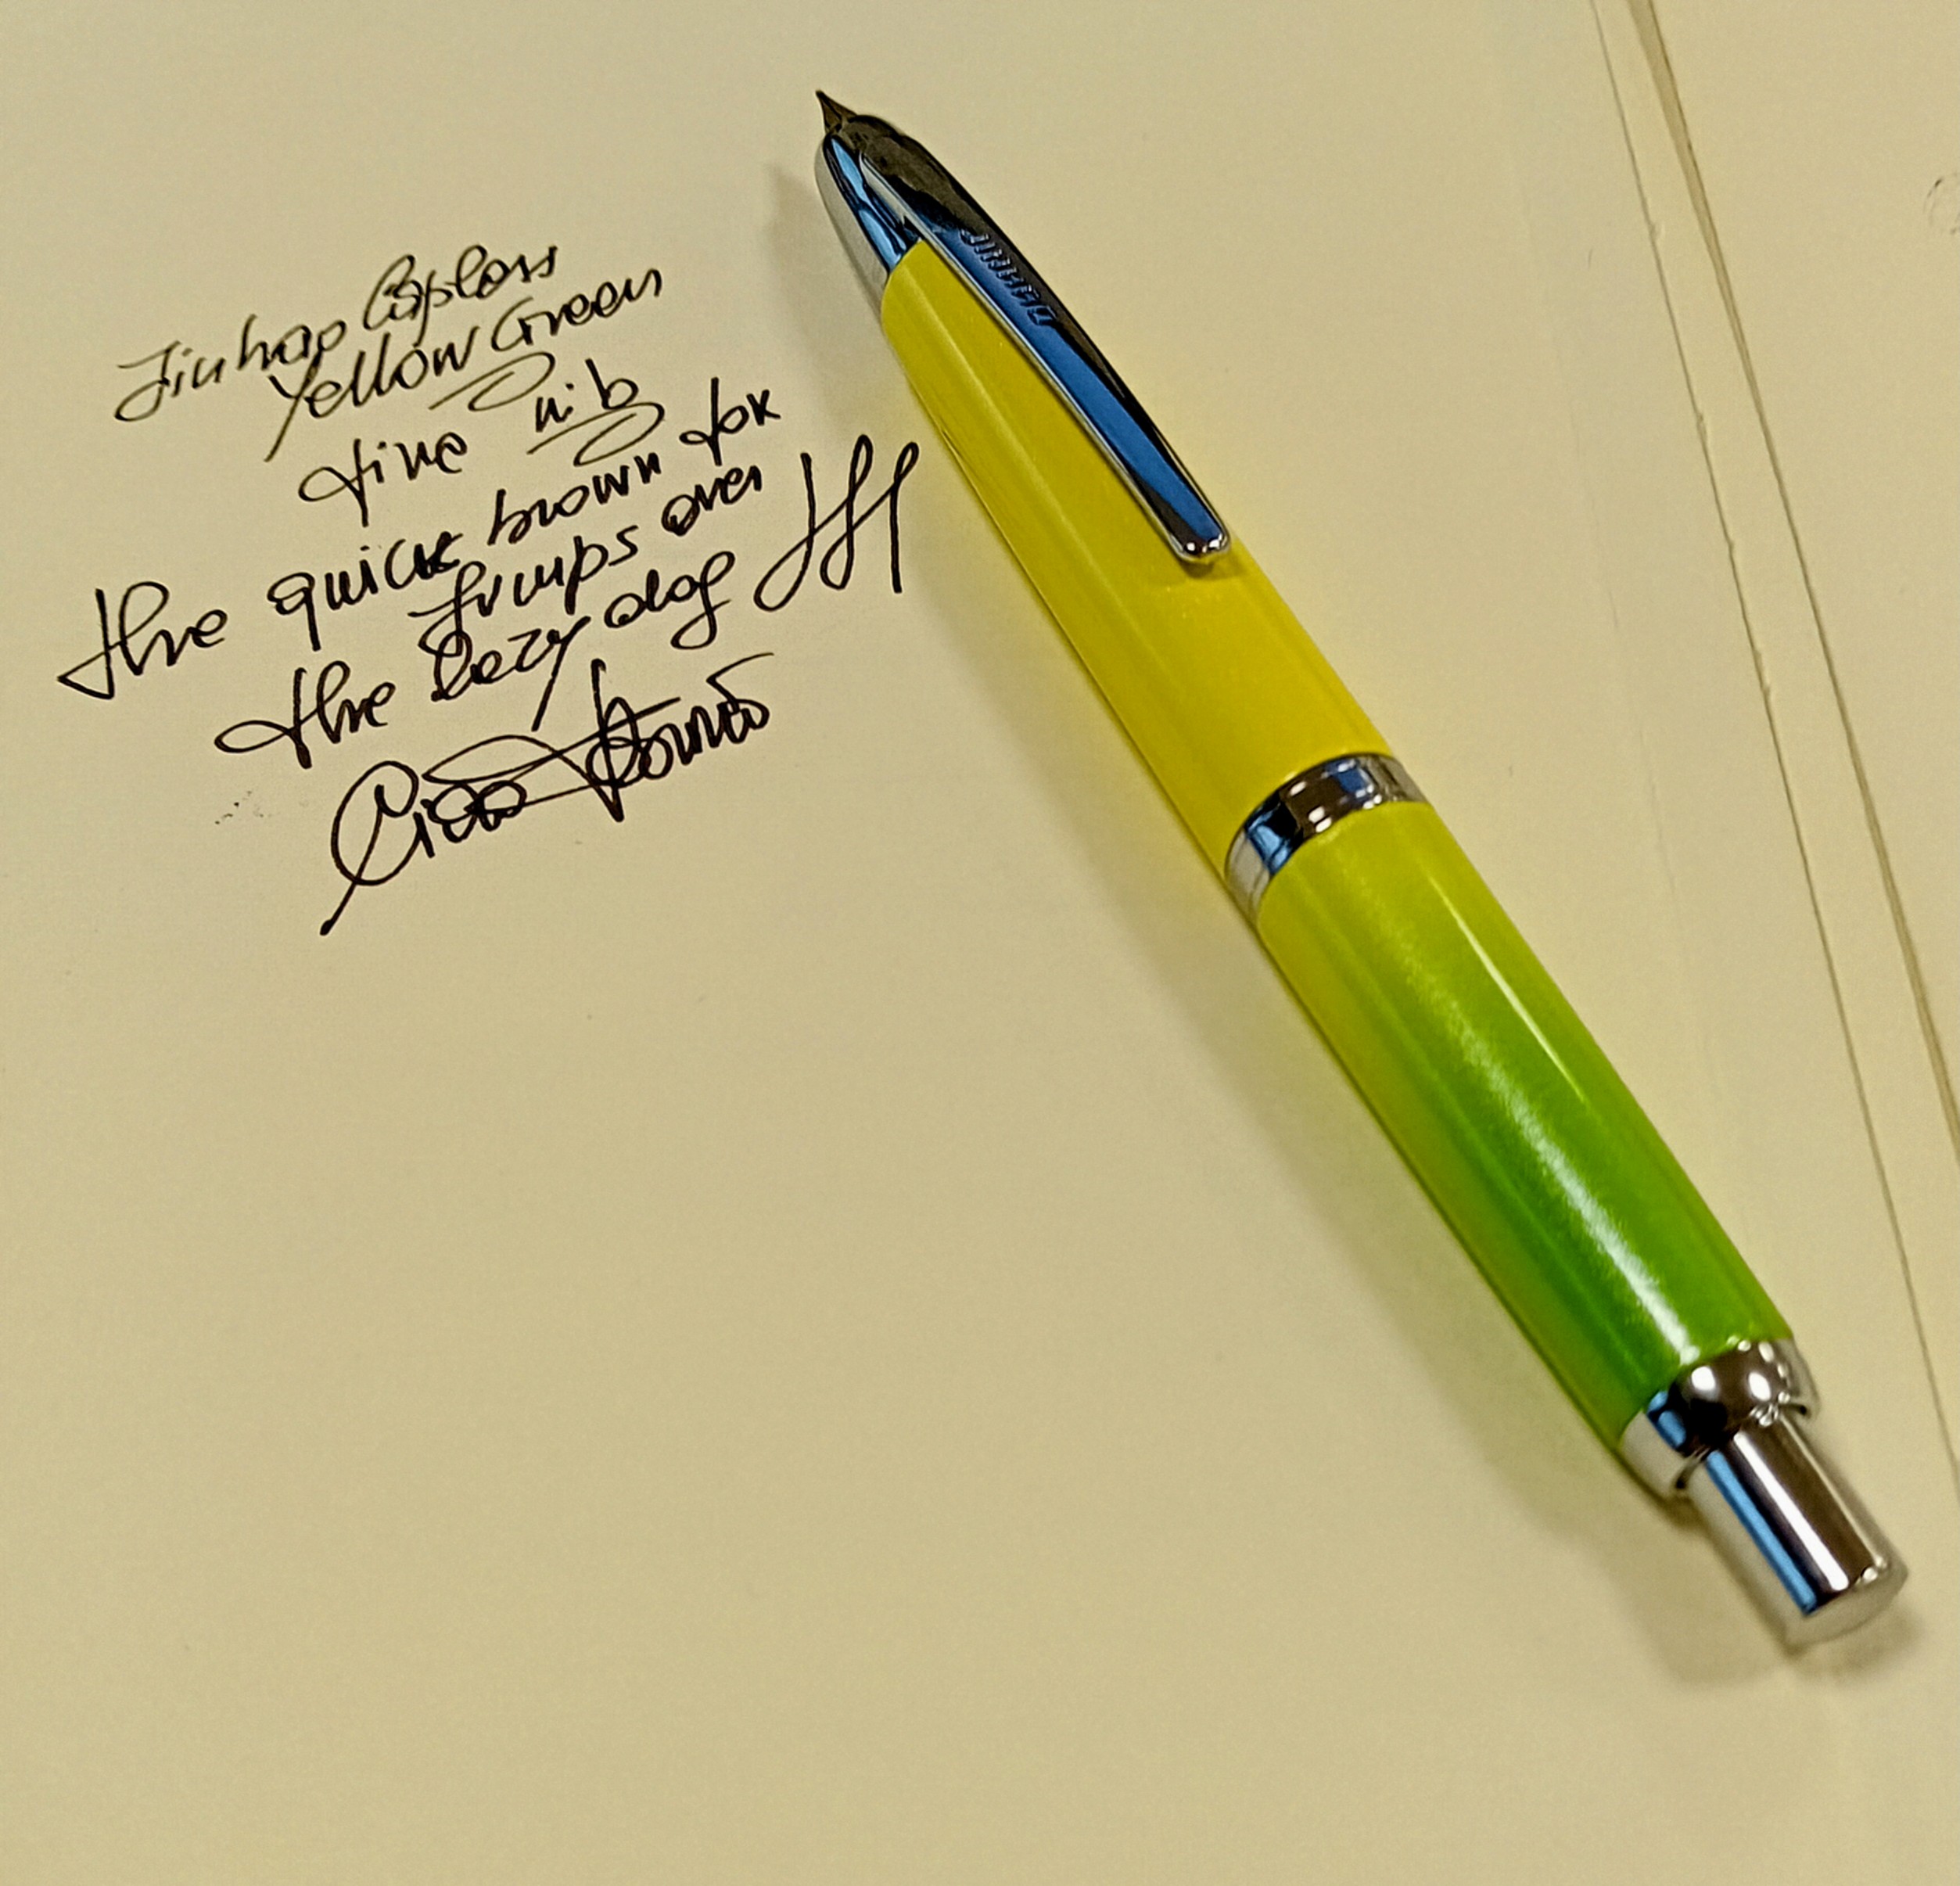 Jinhao Capless
Yellow Green
fine nib
the quick brown fox
jumps over
the lazy dog
Ciao
JINHAO